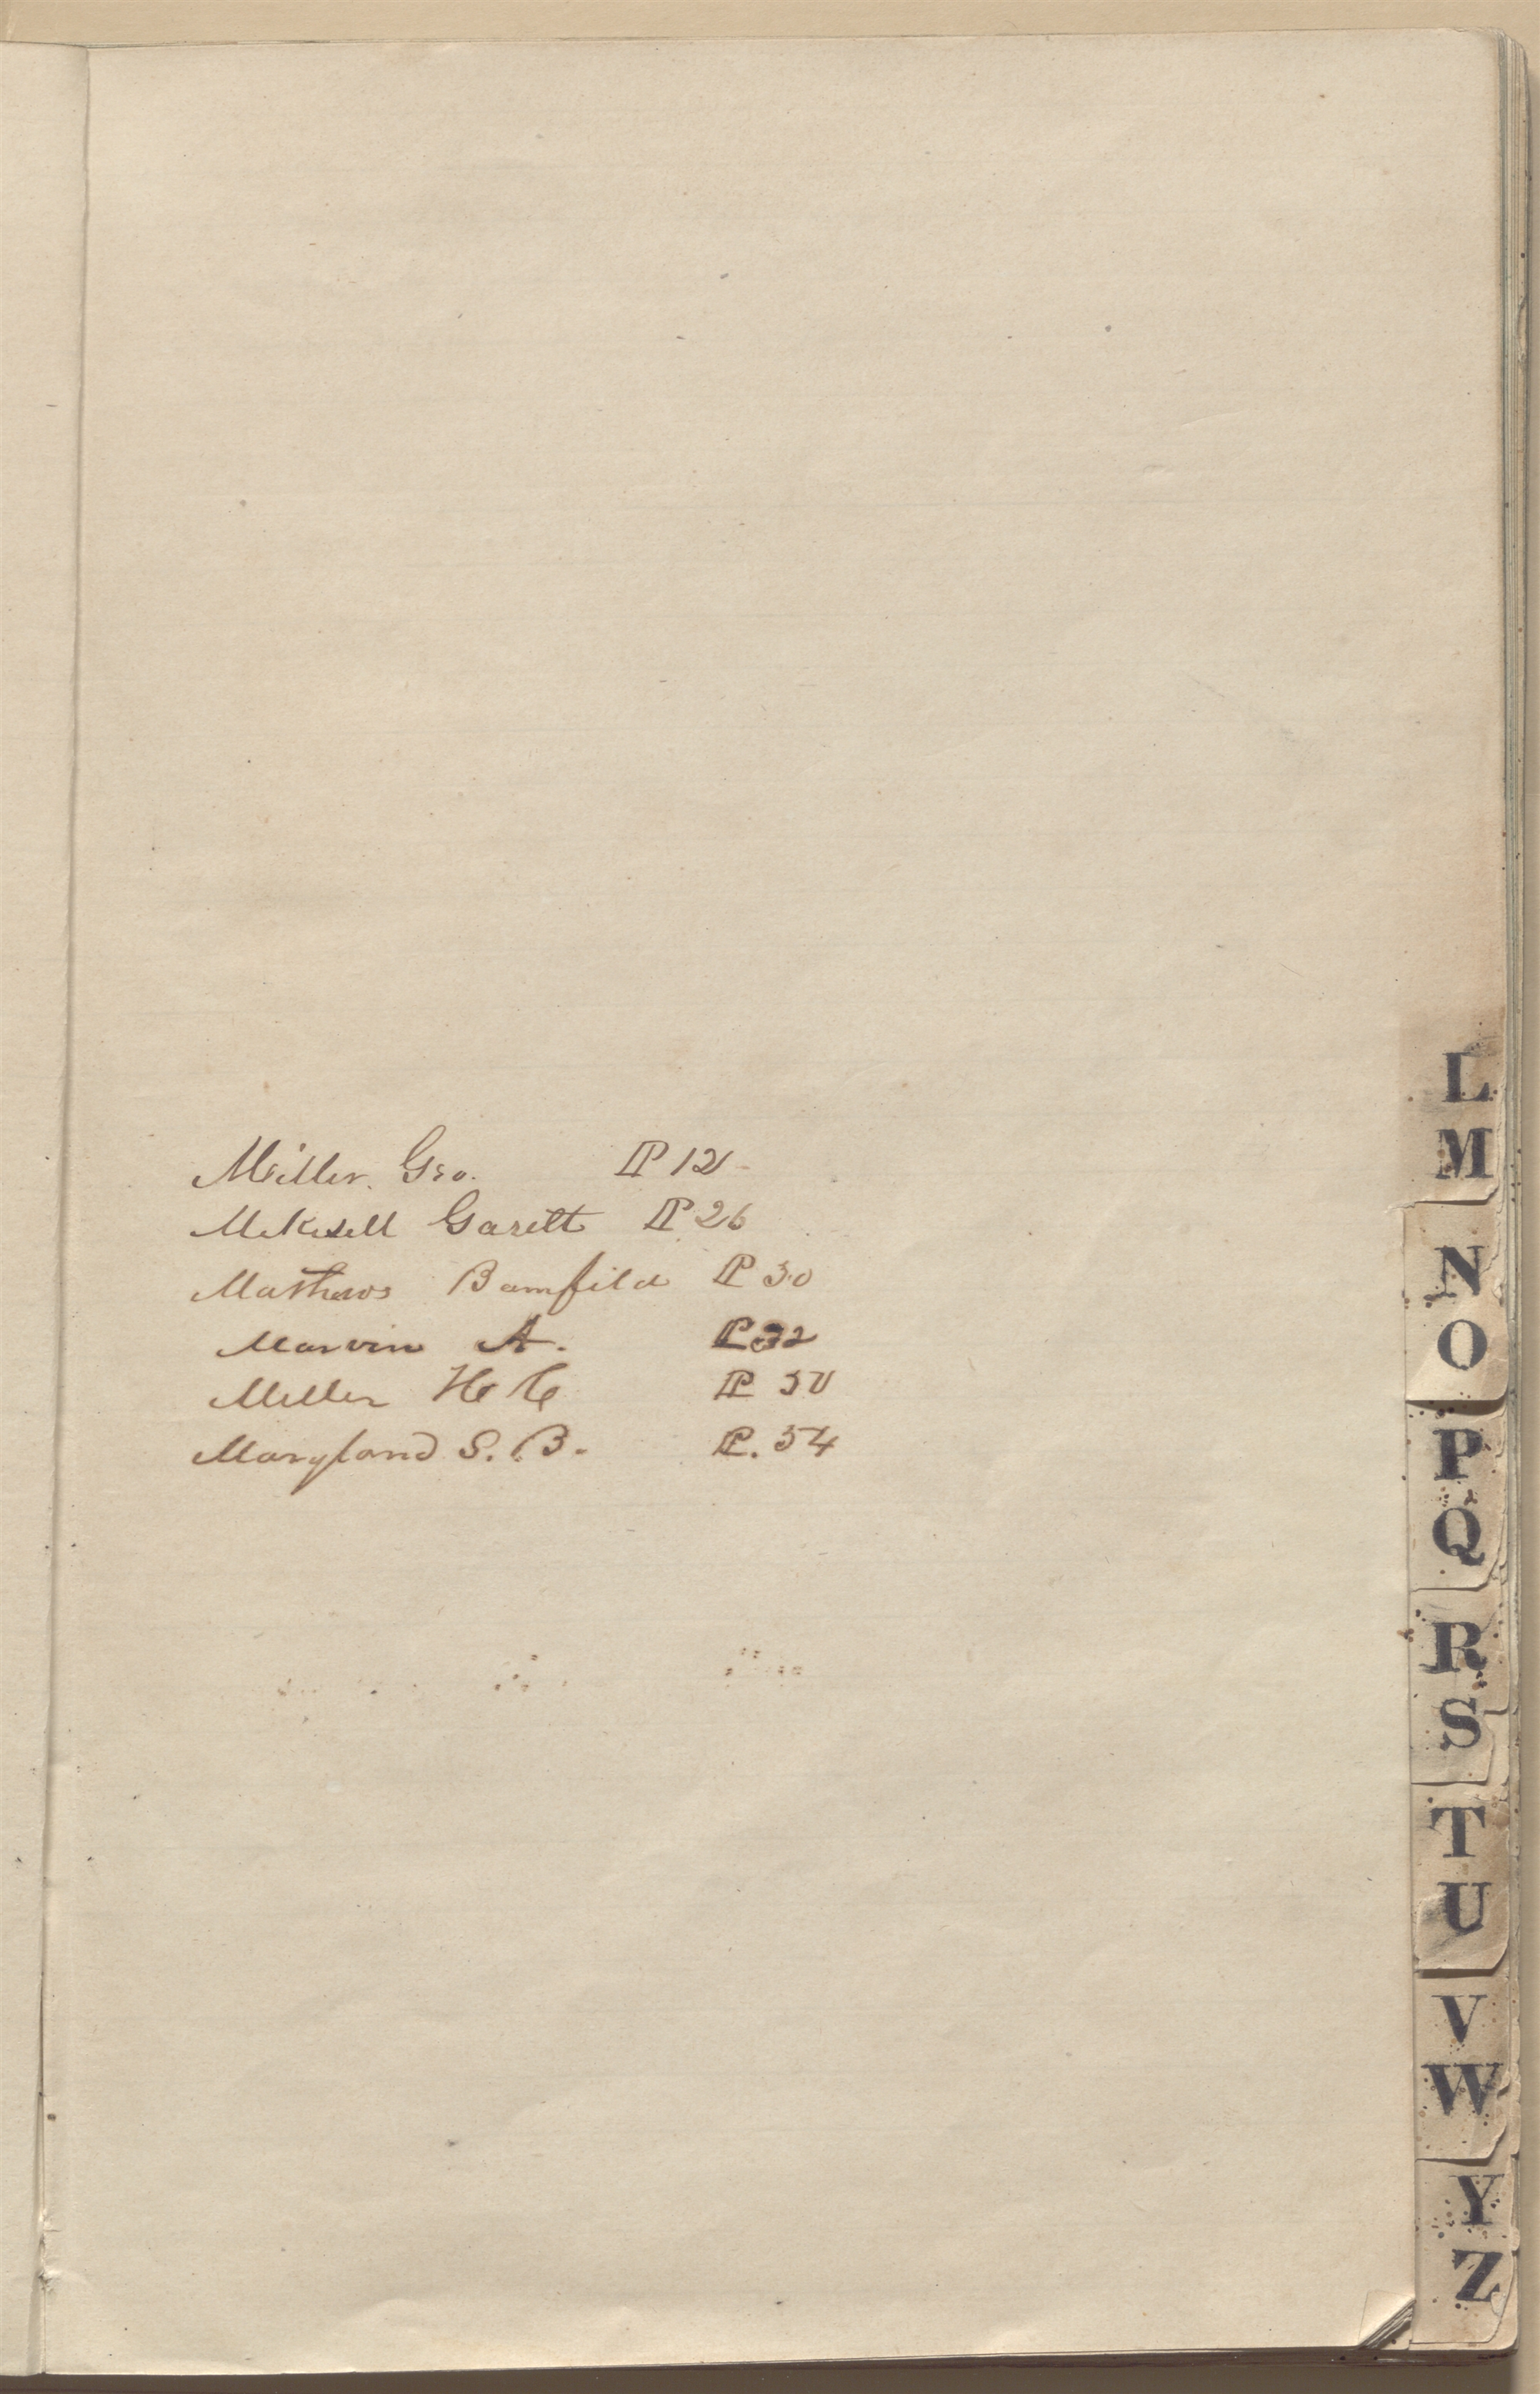 Miller. Geo. P 12
Mekesell Garett P 26
Mathews Bamfild P 30
Marvin A. P 32
Miller H C P 50
Maryland S. B. P. 54
L
M
N
O
P
Q
R
S
T
U
V
W
Y
Z